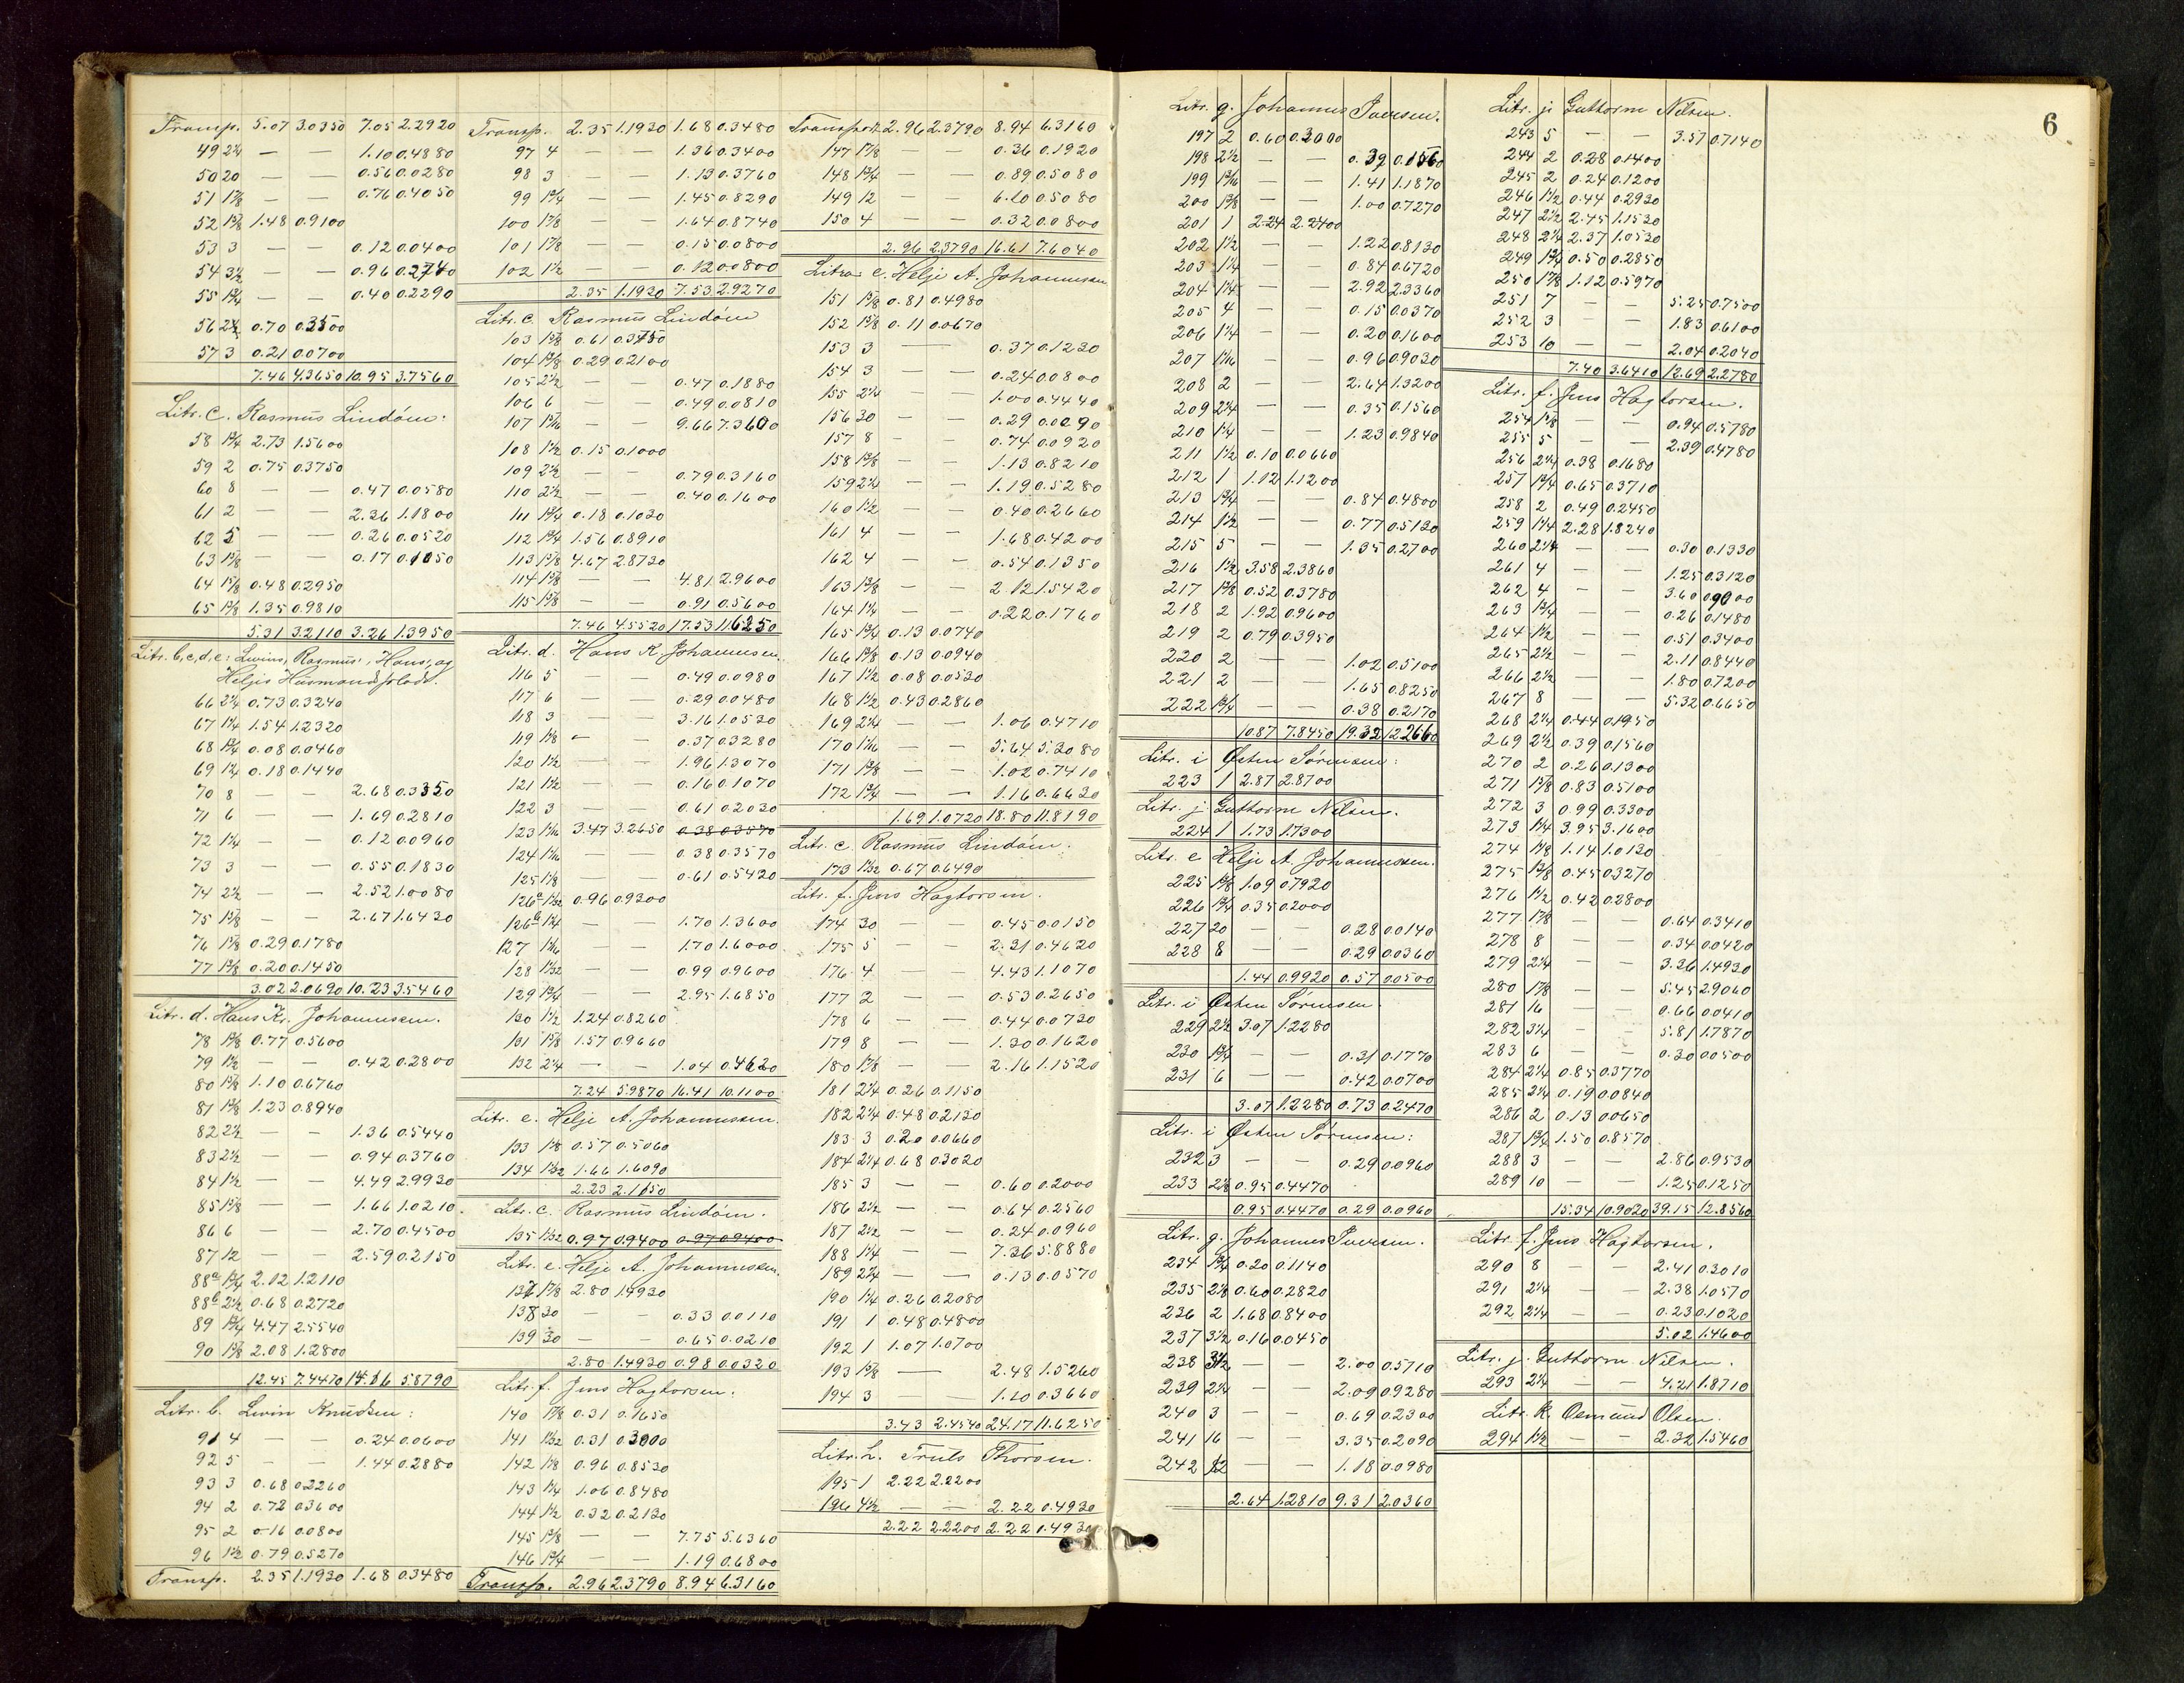 Transp. 5.07 3.0350 7.05 2.2920
49 2¼ — — 1.10 0.4880
50 20 — — 0.56 0.0280
51 1⅞ — — 0.76 0.4050
52 1⅝ 1.48 0.9100
53 3 — — 0.12 0.0400
54 3½ — — 0.96 0.2740
55 1¾ — — 0.40 0.2290
56 2½ 0.70 0.3500
57 3 0.21 0.0700
7.46 4.3650 10.95 3.7560
Litr. c. Rasmus Lindöm:
58 1¾ 2.73 1.5600
59 2 0.75 0.3750
60 8 — — 0.47 0.0580
61 2 — — 2.36 1.1800
62 5 — — 0.26 0.0520
63 1⅝ — — 0.17 0.1050
64 1⅝ 0.48 0.2950
65 1⅜ 1.35 0.9810
5.31 3.2110 3.26 1.3950
Litr. b, c, d, e: Lewins, Rasmus', Hans', og
Heljes Husmandsplads.
66 2¼ 0.73 0.3240
67 1¼ 1.54 1.2320
68 1¾ 0.08 0.0460
69 1¼ 0.18 0.1440
70 8 — — 2.68 0.3350
71 6 — — 1.69 0.2810
72 1¼ — — 0.12 0.0960
73 3 — — 0.55 0.1830
74 2½ — — 2.52 1.0080
75 1⅝ — — 2.67 1.6430
76 1⅝ 0.29 0.1780
77 1⅜ 0.20 0.1450
3.02 2.0690 10.23 3.5460
Litr. d. Hans Kr. Johannesen.
78 1⅜ 0.77 0.5600
79 1½ — — 0.42 0.2800
80 1⅝ 1.10 0.6760
81 1⅜ 1.23 0.8940
82 2½ — — 1.36 0.5440
83 2½ — — 0.94 0.3760
84 1½ — — 4.49 2.9930
85 1⅝ — — 1.66 1.0210
86 6 — — 2.70 0.4500
87 12 — — 2.59 0.2150
88a 1¾ 2.12 1.2110
88b 2½ 0.68 0.2720
89 1¾ 4.47 2.5540
90 1⅝ 2.08 1.2800
12.45 7.4470 15.16 5.8790
Litr. b. Lewin Knudsen:
91 4 — — 0.24 0.0600
92 5 — — 1.44 0.2880
93 3 0.68 0.2260
94 2 0.72 0.3600
95 2 0.16 0.0800
96 1½ 0.79 0.5270
Transp. 2.35 1.1930 1.68 0.3480
Transp. 2.35 1.1930 1.68 0.3480
97 4 — — 1.36 0.3400
98 3 — — 1.13 0.3760
99 1¾ — — 1.45 0.8290
100 1⅞ — — 1.64 0.8740
101 1⅞ — — 0.15 0.0800
102 1½ — — 0.12 0.0800
2.35 1.1930 7.53 2.9270
Litr. c. Rasmus Lindöm
103 1⅝ 0.61 0.3750
104 1⅜ 0.29 0.2100
105 2½ — — 0.47 0.1880
106 6 — — 0.49 0.0810
107 1 5/16 — — 9.66 7.3600
108 1½ 0.15 0.1000
109 2½ — — 0.79 0.3160
110 2½ — — 0.40 0.1600
111 1¾ 0.18 0.1030
112 1¾ 1.56 0.8910
113 1⅝ 4.67 2.8730
114 1⅝ — — 4.81 2.9600
115 1⅝ — — 0.91 0.5600
7.46 4.5520 17.53 11.6250
Litr. d. Hans K. Johannesen.
116 5 — 0.49 0.0980
117 6 — 0.29 0.0480
118 3 — — 3.16 1.0530
119 1⅛ — — 0.37 0.3280
120 1½ — — 1.96 1.3070
121 1½ — — 0.16 0.1070
122 3 — 0.61 0.2030
123 1 1/16 3.47 3.2650 0.38 0.3570
124 1 1/16 — — 0.38 0.3570
125 1⅛ — — 0.61 0.5420
126a 1 1/32 0.96 0.9300
126b 1¼ — 1.70 1.3600
127 1 1/16 — — 1.70 1.6000
128 1 1/32 — — 0.99 0.9600
129 1¾ — — 2.95 1.6850
130 1½ 1.24 0.8260
131 1⅝ 1.57 0.9660
132 2¼ — — 1.04 0.4620
7.24 5.9870 16.41 10.1100
Litr. e. Helje A. Johannessen.
133 1⅛ 0.57 0.5060
134 1 1/32 1.66 1.6090
2.23 2.1150
Litr. c. Rasmus Lindöm.
135 1 1/32 0.97 0.9400 0.97 0.9400
Litr. e. Helje A. Johannesen.
137 1⅞ 2.80 1.4930
138 30 — — 0.33 0.0110
139 30 — — 0.65 0.0210
2.80 1.4930 0.98 0.0320
Litr. f. Jens Hagtorsen:
140 1⅞ 0.31 0.1650
141 1 1/32 0.31 0.3000
142 1⅛ 0.96 0.8530
143 1¼ 1.06 0.8480
144 1½ 0.32 0.2130
145 1⅜ — — 7.75 5.6360
146 1¾ — — 1.19 0.6800
Transp. 2.96 2.3790 8.94 6.3160
Transport 2.96 2.3790 8.94 6.3160
147 1⅞ — — 0.36 0.1920
148 1¾ — — 0.89 0.5080
149 12 — — 6.10 0.5080
150 4 — — 0.32 0.0800
2.96 2.3790 16.61 7.6040
Litra e. Helje A. Johannessen
151 1⅝ 0.81 0.4980
152 1⅝ 0.11 0.0670
153 3 — 0.37 0.1230
154 3 — 0.24 0.0800
155 2¼ — 1.00 0.4440
156 30 — 0.29 0.0090
157 8 — — 0.74 0.0920
158 1⅜ — — 1.13 0.8210
159 2¼ — — 1.19 0.5280
160 1½ — — 0.40 0.2660
161 4 — 1.68 0.4200
162 4 — — 0.54 0.1350
163 1⅜ — — 2.12 1.5420
164 1¼ — — 0.22 0.1760
165 1¾ 0.13 0.0740
166 1⅜ 0.13 0.0940
167 1½ 0.08 0.0530
168 1½ 0.43 0.2860
169 2¼ — — 1.06 0.4710
170 1 1/16 — — 5.64 5.3080
171 1⅜ — — 1.02 0.7410
172 1¾ — — 1.16 0.6630
1.69 1.0720 18.80 11.8190
Litr. c. Rasmus Lindöm.
173 1 1/32 0.67 0.6490
Litr. f. Jens Hagtorsen.
174 30 — 0.45 0.0150
175 5 — 2.31 0.4620
176 4 — — 4.43 1.1070
177 2 — — 0.53 0.2650
178 6 — — 0.44 0.0730
179 8 — — 1.30 0.1620
180 1⅞ — — 2.16 1.1520
181 2¼ 0.26 0.1150
182 2¼ 0.48 0.2130
183 3 0.20 0.0660
184 2¼ 0.68 0.3020
185 3 — — 0.60 0.2000
186 2½ — — 0.64 0.2560
187 2½ — — 0.24 0.0960
188 1¼ — — 7.36 5.8880
189 2¼ — — 0.13 0.0570
190 1¼ 0.26 0.2080
191 1 0.48 0.4800
192 1 1.07 1.0700
193 1⅝ — — 2.48 1.5260
194 3 — 1.10 0.3660
3.43 2.4540 24.17 11.6250
Litr. h. Truls Thorsen.
195 1 2.22 2.2200
196 4½ — — 2.22 0.4930
2.22 2.2200 2.22 0.4930
Litr. g. Johannes Iversen.
197 2 0.60 0.3000
198 2½ — — 0.39 0.1560
199 1 3/16 — — 1.41 1.1870
200 1⅜ — — 1.00 0.7270
201 1 2.24 2.2400
202 1½ — — 1.22 0.8130
203 1¼ — — 0.84 0.6720
204 1¼ — — 2.92 2.3360
205 4 — — 0.15 0.0370
206 1¼ — — 0.20 0.1600
207 1 1/16 — — 0.96 0.9030
208 2 — — 2.64 1.3200
209 2¼ — — 0.35 0.1560
210 1¼ — — 1.23 0.9840
211 1½ 0.10 0.0660
212 1 1.12 1.1200
213 1¾ — — 0.84 0.4800
214 1½ — — 0.77 0.5130
215 5 — — 1.35 0.2700
216 1½ 3.58 2.3860
217 1⅜ 0.52 0.3780
218 2 1.92 0.9600
219 2 0.79 0.3950
220 2 — — 1.02 0.5100
221 2 — — 1.65 0.8250
222 1¾ — — 0.38 0.2170
10.87 7.8450 19.32 12.2660
Litr. i Östen Sörensen:
223 1 2.87 2.8700
Litr. j Guthorm Nilsen.
224 1 1.73 1.7300
Litr. e Helje A. Johannessen.
225 1⅜ 1.09 0.7920
226 1¾ 0.35 0.2000
227 20 — — 0.28 0.0140
228 8 — — 0.29 0.0360
1.44 0.9920 0.57 0.0500
Litr. i Östen Sörensen.
229 2½ 3.07 1.2280
230 1¾ — — 0.31 0.1770
231 6 — — 0.42 0.0700
3.07 1.2280 0.73 0.2470
Litr. i Östen Sörensen:
232 3 — — 0.29 0.0960
233 2⅛ 0.95 0.4470
0.95 0.4470 0.29 0.0960
Litr. g. Johannes Iversen.
234 1¾ 0.20 0.1140
235 2⅛ 0.60 0.2820
236 2 1.68 0.8400
237 3½ 0.16 0.0450
238 3½ — — 2.00 0.5710
239 2¼ — — 2.09 0.9280
240 3 — — 0.69 0.2300
241 16 — — 3.35 0.2090
242 12 — — 1.18 0.0980
2.64 1.2810 9.31 2.0360
Litr. j. Guthorm Nilsen.
243 5 — — 3.57 0.7140
244 2 0.28 0.1400
245 2 0.24 0.1200
246 1½ 0.44 0.2930
247 2½ 2.45 1.1530
248 2¼ 2.37 1.0530
249 1¾ 0.50 0.2850
250 1⅞ 1.12 0.5970
251 7 — — 5.25 0.7500
252 3 — — 1.83 0.6100
253 10 — — 2.04 0.2040
7.40 3.6410 12.69 2.2780
Litr. f. Jens Hagtorsen.
254 1⅝ — — 0.94 0.5780
255 5 — — 2.39 0.4780
256 2¼ 0.38 0.1680
257 1¾ 0.65 0.3710
258 2 0.49 0.2450
259 1¼ 2.28 1.8240
260 2¼ — — 0.30 0.1330
261 4 — — 1.25 0.3120
262 4 — — 3.60 0.9000
263 1¾ — — 0.26 0.1480
264 1½ — — 0.51 0.3400
265 2½ — — 2.11 0.8440
266 2½ — — 1.80 0.7200
267 8 — — 5.32 0.6650
268 2¼ 0.44 0.1950
269 2½ 0.39 0.1560
270 2 0.26 0.1300
271 1⅝ 0.83 0.5100
272 3 0.99 0.3300
273 1¼ 3.95 3.1600
274 1⅛ 1.14 1.0130
275 1⅜ 0.45 0.3270
276 1½ 0.42 0.2800
277 1⅞ — — 0.64 0.3410
278 8 — — 0.34 0.0420
279 2¼ — — 3.36 1.4930
280 1⅞ — — 5.45 2.9060
281 16 — — 0.66 0.0410
282 3¼ — — 5.81 1.7870
283 6 — — 0.30 0.0500
284 2¼ 0.85 0.3770
285 2¼ 0.19 0.0840
286 2 0.13 0.0650
287 1¾ 1.50 0.8570
288 3 — — 2.86 0.9530
289 10 — — 1.25 0.1250
15.34 10.9020 39.15 12.8560
Litr. f. Jens Hagtorsen.
290 8 — — 2.41 0.3010
291 2¼ — — 2.38 1.0570
292 2¼ — — 0.23 0.1020
5.02 1.4600
Litr. j. Guthorm Nilsen.
293 2¼ — — 4.21 1.8710
Litr. k. Osmund Olsen.
294 1½ — — 2.32 1.5460
6